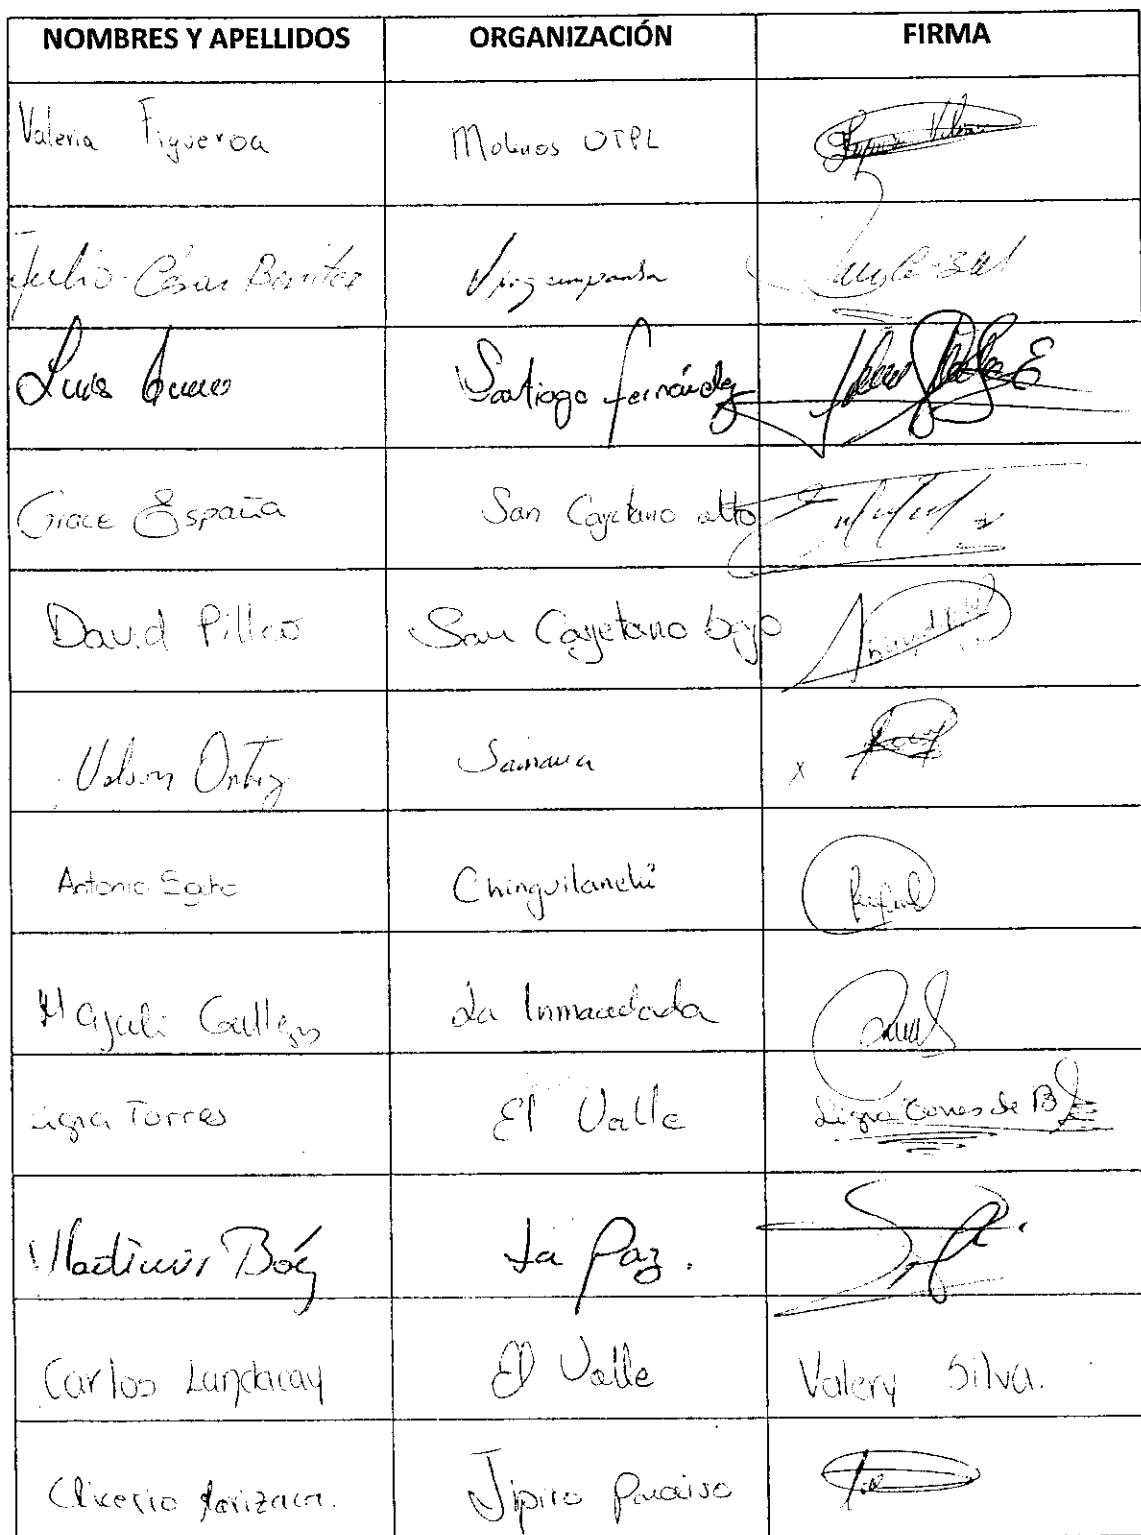 NOMBRES Y APELLIDOS ORGANIZACIÓN FIRMA
Valeria Figueroa Molinos UTPL
Julio César Benítez
Luis Santiago Fernández
Grace España San Cayetano alto
David Pillco San Cayetano bajo
Ortiz Samana x
Antonio Chinguilanchi
Magali La Inmaculada
Ligia Torres El Valle Ligia Torres de B
Vladimir La Paz.
Carlos Landacay El Valle Valery Silva.
Clicerio Jipiro Paraiso